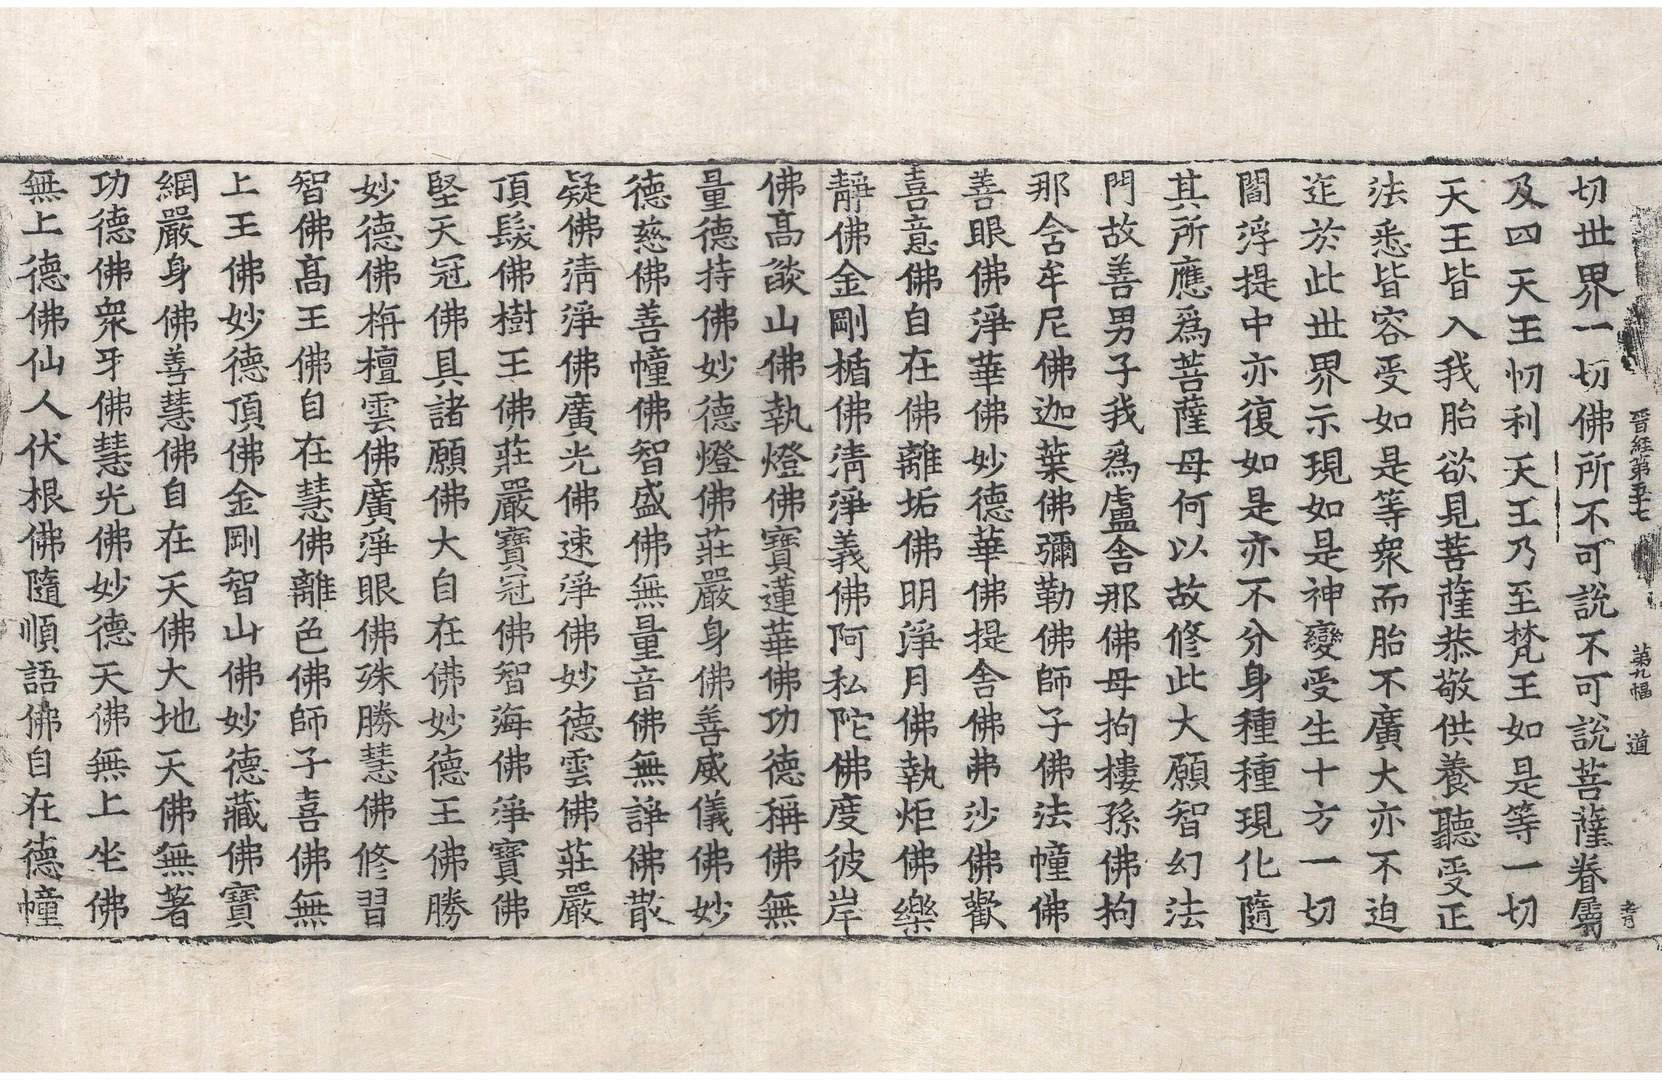 晉經第五十七　第九幅　道
切世界一切佛所不可說不可說菩薩眷屬
及四天王忉利天王乃至梵王如是等一切
天王皆入我胎欲見菩薩恭敬供養聽受正
法悉皆容受如是等衆而胎不廣大亦不迫
迮於此世界示現如是神變受生十方一切
閻浮提中亦復如是亦不分身種種現化隨
其所應爲菩薩母何以故修此大願智幻法
門故善男子我爲盧舍那佛母拘樓孫佛拘
那含牟尼佛迦葉佛彌勒佛師子佛法幢佛
善眼佛淨華佛妙德華佛提舍佛弗沙佛歡
喜意佛自在佛離垢佛明淨月佛執炬佛樂
靜佛金剛楯佛淸淨義佛阿私陀佛度彼岸
佛高燄山佛執燈佛寶蓮華佛功德稱佛無
量德持佛妙德燈佛莊嚴身佛善威儀佛妙
德慈佛善幢佛智盛佛無量音佛無諍佛散
疑佛淸淨佛廣光佛速淨佛妙德雲佛莊嚴
頂髮佛樹王佛莊嚴寶冠佛智海佛淨寶佛
堅天冠佛具諸願佛大自在佛妙德王佛勝
妙德佛栴檀雲佛廣淨眼佛殊勝慧佛修習
智佛高王佛自在慧佛離色佛師子喜佛無
上王佛妙德頂佛金剛智山佛妙德藏佛寶
網嚴身佛善慧佛自在天佛大地天佛無著
功德佛衆牙佛慧光佛妙德天佛無上坐佛
無上德佛仙人伏根佛隨順語佛自在德幢